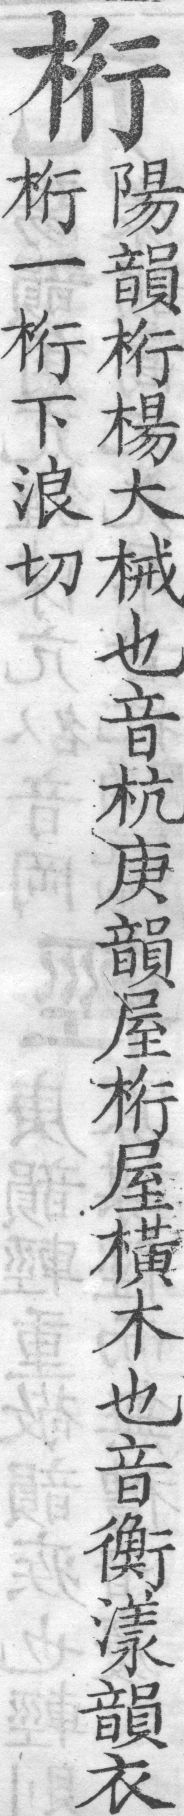 桁
陽韻桁楊大械也音杭庚韻屋桁屋橫木也音衡漾韻衣
桁一桁下浪切